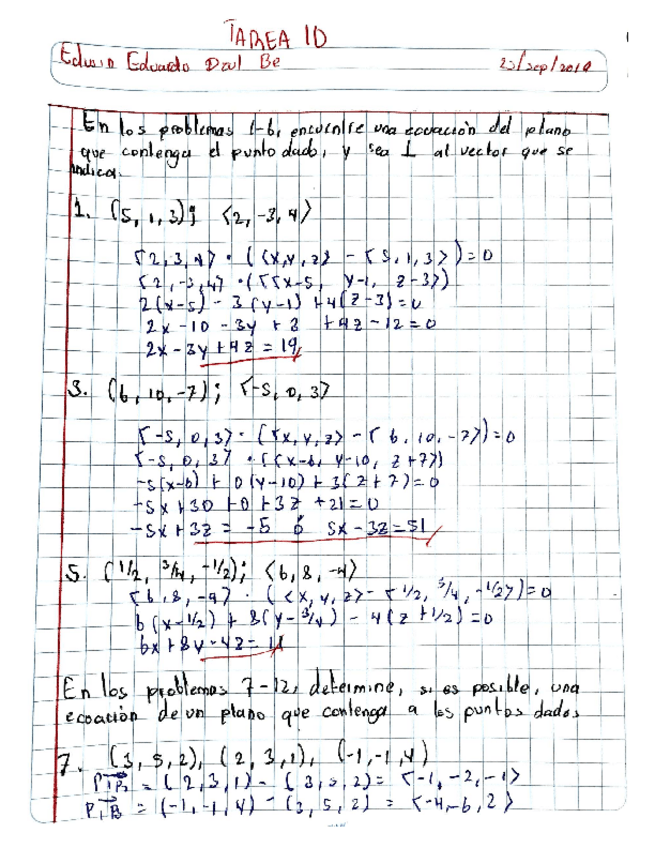 TAREA 10
Edwin Eduardo Dzul Be 23/sep/2019
En los problemas 1-6, encuentre una ecuación del plano
que contenga el punto dado, y sea ⊥ al vector que se
indica.
1. (5, 1, 3); <2, -3, 4>
<2, 3, 4> · (<x, y, z> - <5, 1, 3>) = 0
<2, -3, 4> · (<x-5, y-1, z-3>)
2(x-5) - 3(y-1) + 4(z-3) = 0
2x - 10 - 3y + 3 + 4z - 12 = 0
2x - 3y + 4z = 19
3. (6, 10, -7); <-5, 0, 3>
<-5, 0, 3> · (<x, y, z> - <6, 10, -7>) = 0
<-5, 0, 3> · (<x-6, y-10, z+7>)
-5(x-6) + 0(y-10) + 3(z+7) = 0
-5x + 30 + 0 + 3z + 21 = 0
-5x + 3z = -5 ó 5x - 3z = 51
5. (1/2, 3/4, -1/2); <6, 8, -4>
<6, 8, -4> · (<x, y, z> - <1/2, 3/4, -1/2>) = 0
6(x - 1/2) + 8(y - 3/4) - 4(z + 1/2) = 0
6x + 8y - 4z = 11
En los problemas 7-12, determine, si es posible, una
ecuación de un plano que contenga a los puntos dados
7. (3, 5, 2), (2, 3, 1), (-1, -1, 4)
= (2, 3, 1) - (3, 5, 2) = <-1, -2, -1>
= (-1, -1, 4) - (3, 5, 2) = <-4, -6, 2>